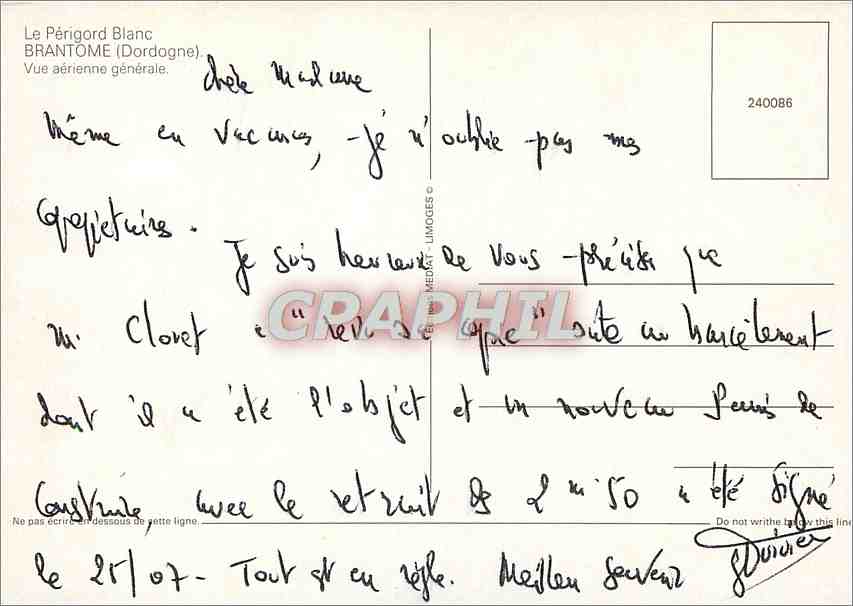 Le Périgord Blanc
BRANTOME (Dordogne).
Vue aérienne générale.
240086
chère Madame
même en vacances, je n'oublie pas mes
copropriétaires.
Je suis heureux de vous préciser que
M. Cloret a "revu sa copie" suite au harcèlement
dont il a été l'objet et un nouveau Permis de
Construire, avec le retrait de 2 m 50 a été signé
le 25/07 - Tout est en règle. Meilleur Souvenir
Editions MEDIAT - LIMOGES ©
CPAPHIL
Ne pas écrire en dessous de cette ligne.
Do not writhe below this line